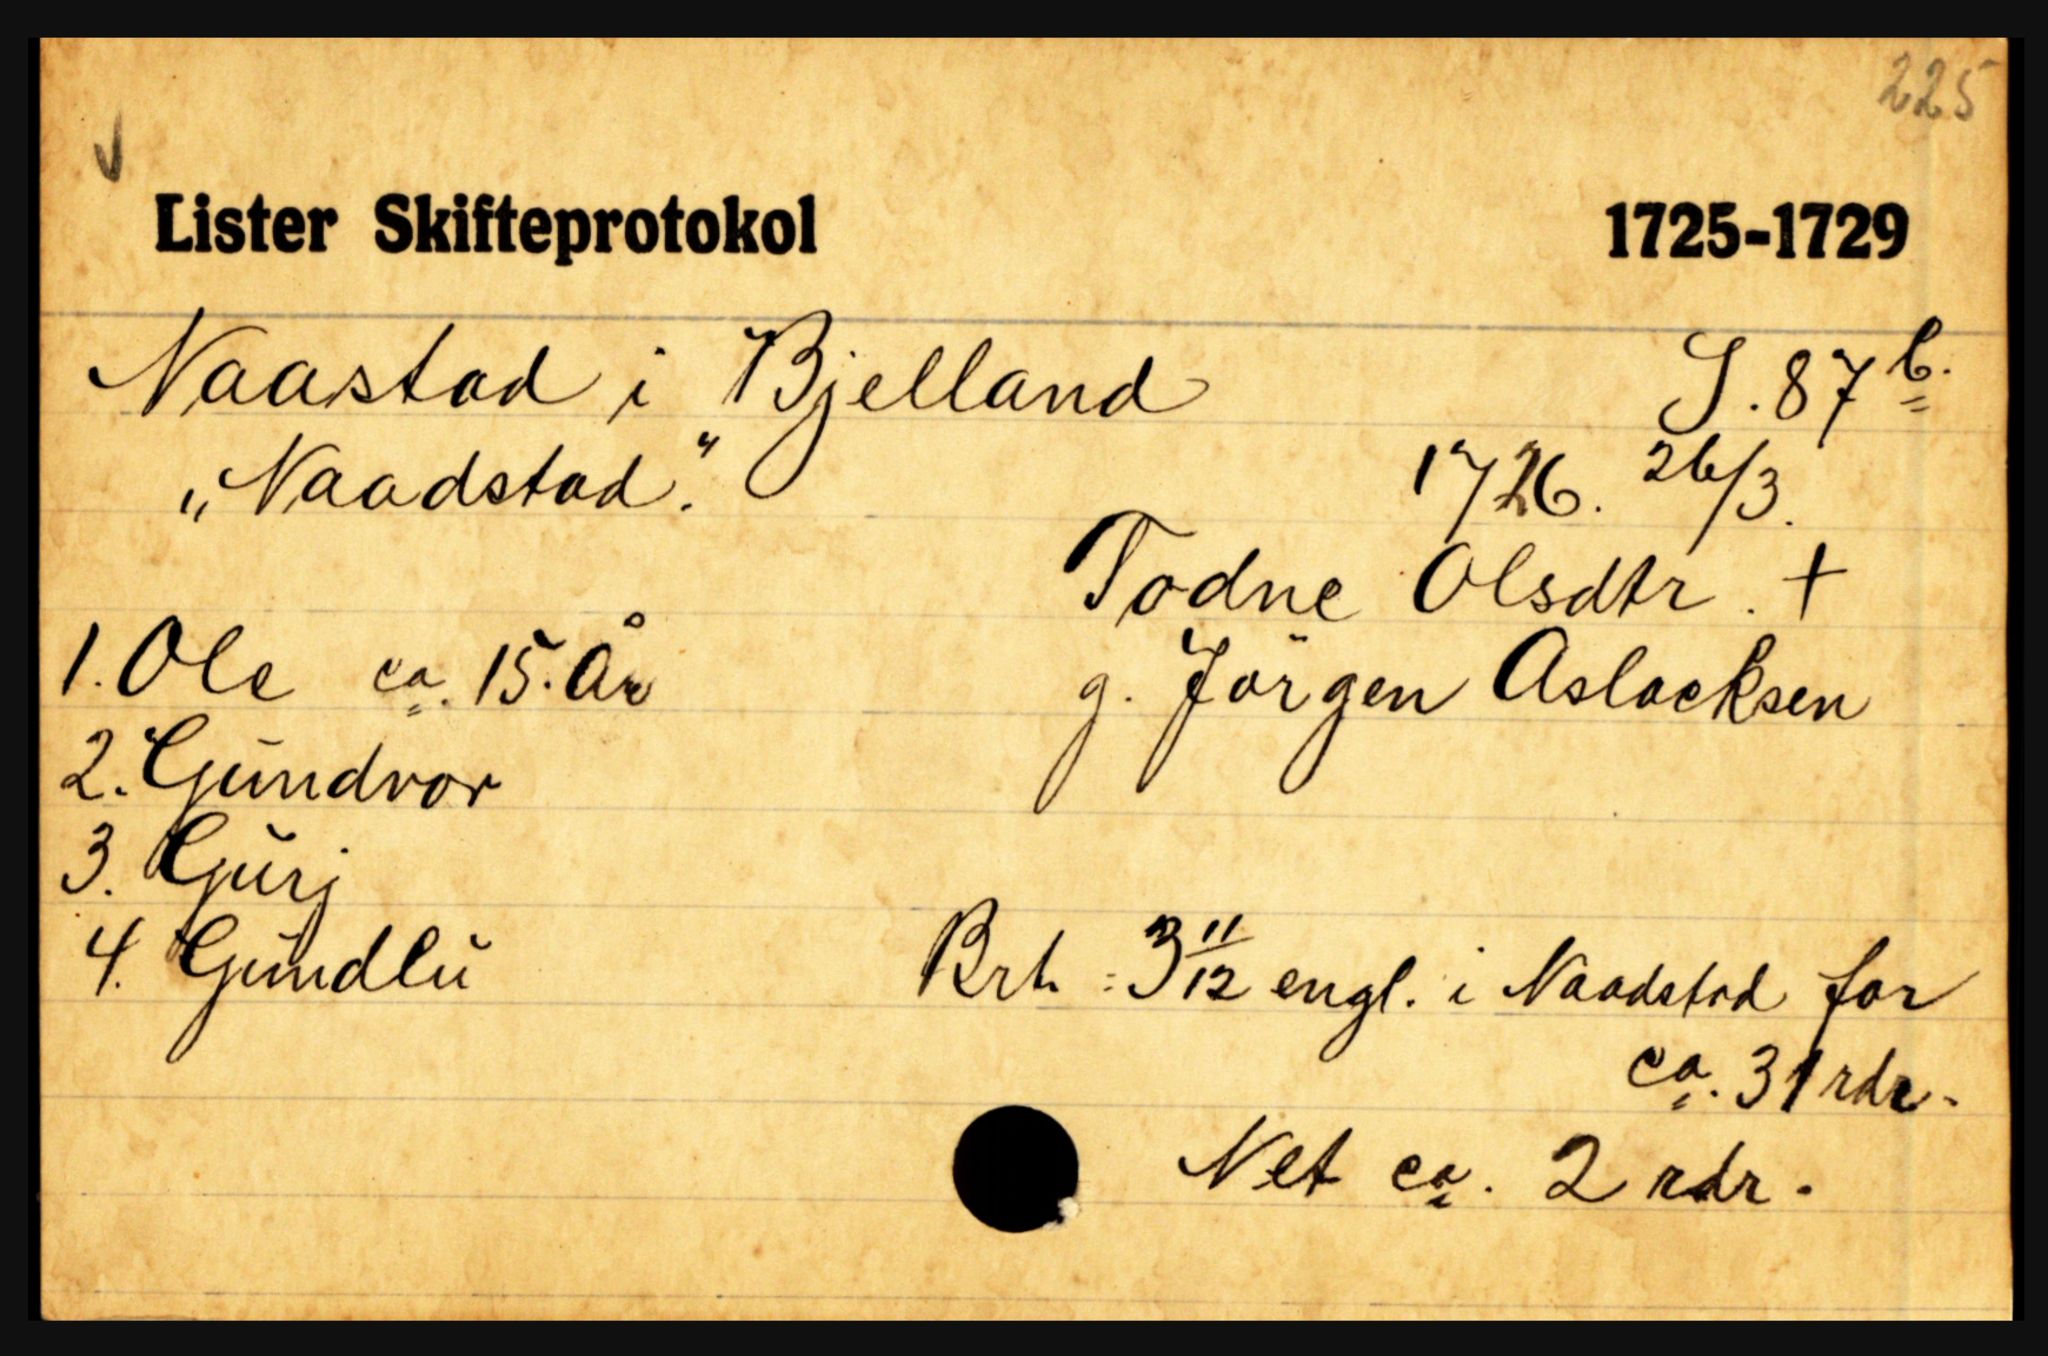 225
Lister Skifteprotokol 1725-1729
Naastad i Bjelland S. 87 b.
„Naadstad." 1726. 26/3.
Todne Olsdtr. +
1. Ole ca. 15. År g. Jörgen Aslacksen
2. Gŭndvor
3. Gŭrj
4. Gŭndlŭ Brt. : 3 11/12 engl. i Naadstad for
ca. 31 rdr.
Net ca. 2 rdr.